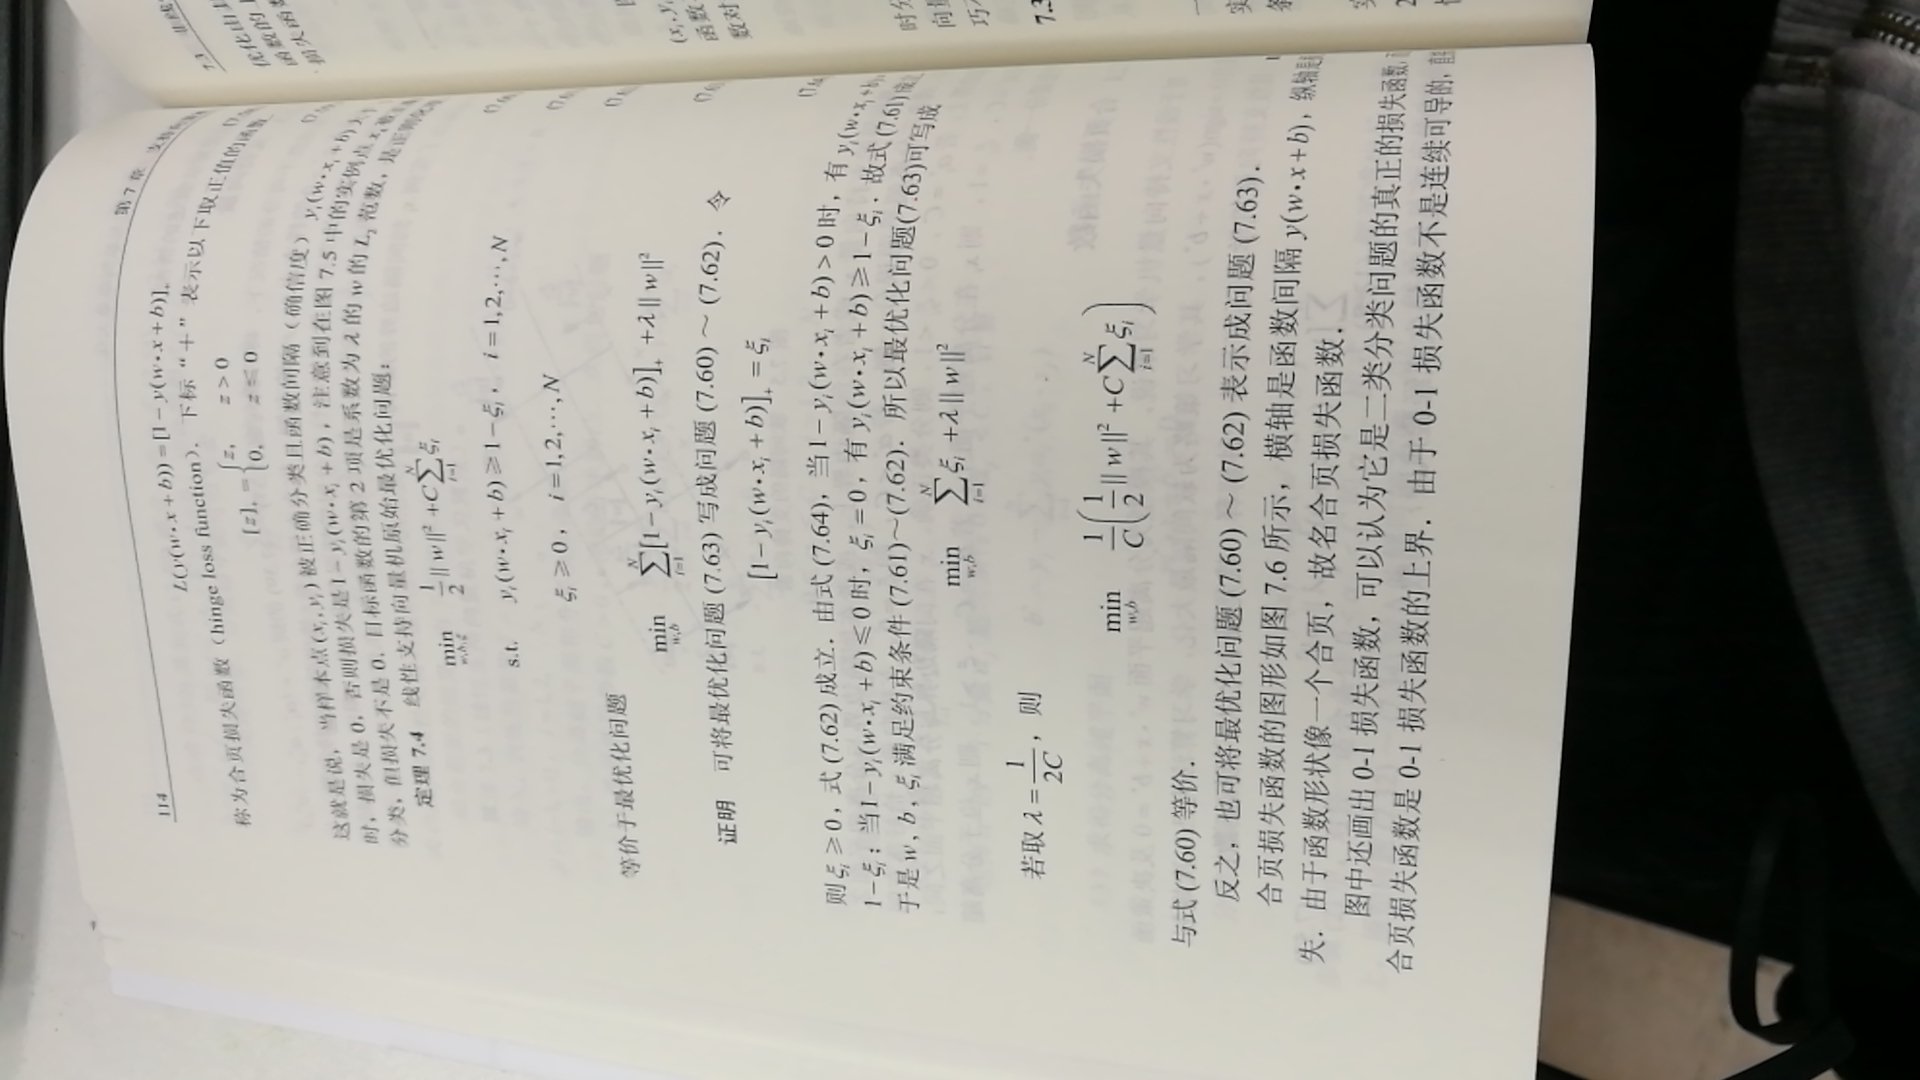 114
第 7 章 支持向量
L(y(w·x+b))=[1-y(w·x+b)]₊
称为合页损失函数（hinge loss function）．下标“+”表示以下取正值的函数
[z]₊={z, z>0
0, z≤0
这就是说，当样本点(xᵢ,yᵢ)被正确分类且函数间隔（确信度）yᵢ(w·xᵢ+b)
时，损失是 0，否则损失是1-yᵢ(w·xᵢ+b)，注意到在图 7.5 中的实例点 x₄ 被
分类，但损失不是 0．目标函数的第 2 项是系数为 λ 的 w 的 L₂ 范数，是正则化
定理 7.4 线性支持向量机原始最优化问题：
min_{w,b,ξ} 1/2||w||²+C∑_{i=1}^{N}ξᵢ
s.t. yᵢ(w·xᵢ+b)≥1-ξᵢ, i=1,2,⋯,N
ξᵢ≥0, i=1,2,⋯,N
等价于最优化问题
min_{w,b} ∑_{i=1}^{N}[1-yᵢ(w·xᵢ+b)]₊+λ||w||²
证明 可将最优化问题 (7.63) 写成问题 (7.60)～(7.62)．令
[1-yᵢ(w·xᵢ+b)]₊=ξᵢ
则 ξᵢ≥0，式 (7.62) 成立．由式 (7.64)，当 1-yᵢ(w·xᵢ+b)>0 时，有 yᵢ(w·xᵢ+b)
1-ξᵢ；当1-yᵢ(w·xᵢ+b)≤0 时，ξᵢ=0，有 yᵢ(w·xᵢ+b)≥1-ξᵢ．故式 (7.61)
于是 w，b，ξᵢ 满足约束条件 (7.61)～(7.62)．所以最优化问题(7.63)可写成
min_{w,b} ∑_{i=1}^{N}ξᵢ+λ||w||²
若取 λ=1/2C，则
min_{w,b} 1/C(1/2||w||²+C∑_{i=1}^{N}ξᵢ)
与式 (7.60) 等价．
反之，也可将最优化问题 (7.60)～(7.62) 表示成问题 (7.63)．
合页损失函数的图形如图 7.6 所示，横轴是函数间隔 y(w·x+b)，纵轴是
失．由于函数形状像一个合页，故名合页损失函数．
图中还画出 0-1 损失函数，可以认为它是二类分类问题的真正的损失函数
合页损失函数是 0-1 损失函数的上界．由于 0-1 损失函数不是连续可导的，